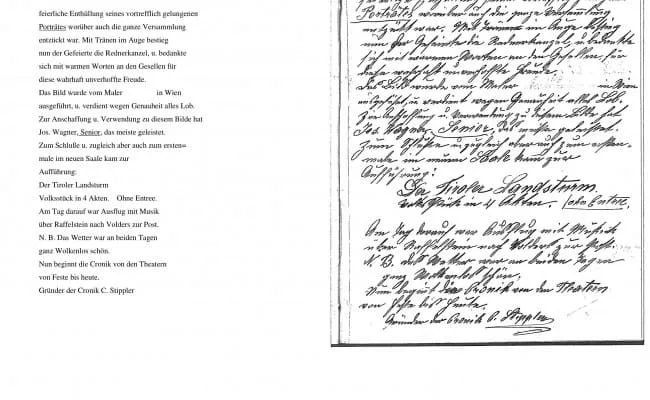 feierliche Enthüllung seines vortrefflich gelungenen
Porträtes worüber auch die ganze Versammlung
entzückt war. Mit Tränen im Auge bestieg
nun der Gefeierte die Rednerkanzel, u. bedankte
sich mit warmen Worten an den Gesellen für
diese wahrhaft unverhoffte Freude.
Das Bild wurde vom Maler in Wien
ausgeführt, u. verdient wegen Genauheit alles Lob.
Zur Anschaffung u. Verwendung zu diesem Bilde hat
Jos. Wagner, Senior, das meiste geleistet.
Zum Schlulle u, zugleich aber auch zum ersten=
male im neuen Saale kam zur
Aufführung:
Der Tiroler Landsturm
Volksstück in 4 Akten. Ohne Entree.
Am Tag darauf war Ausflug mit Musik
über Raffelstein nach Volders zur Post.
N. B. Das Wetter war an beiden Tagen
ganz Wolkenlos schön.
Nun beginnt die Cronik von den Theatern
von Feste bis heute.
Gründer der Cronik C. Stippler
Porträtes worüber auch die ganze Versammlung
entzückt war. Mit Tränen im Auge bestieg
nun der Gefeierte die Rednerkanzel, u. bedankte
sich mit warmen Worten an den Gesellen, für
diese wahrhaft unverhoffte Freude.
Das Bild wurde vom Maler in Wien
ausgeführt, u. verdient wegen Genauheit alles Lob.
Zur Anschaffung u. Verwendung zu diesem Bilde hat
Jos. Wagner, Senior, das meiste geleistet.
Zum Schluße u. zugleich aber auch zum ersten=
male im neuen Saale kam zur
Aufführung:
Der Tiroler Landsturm.
Volksstück in 4 Akten. (ohne Entree.
Am Tag darauf war Ausflug mit Musick
über Raffelstein nach Volders zur Post.
N. B. Das Wetter war an beiden Tagen
ganz Wolkenlos schön.
Nun beginnt die Cronik von den Theatern
von Feste bis heute.
Gründer der Cronik C. Stippler